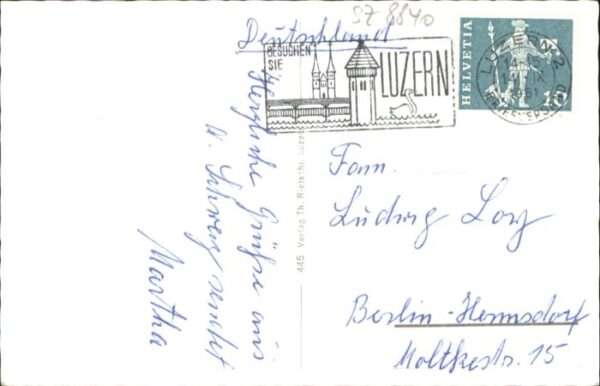 SZ 8840
Deutschland
BESUCHEN
SIE
LUZERN
HELVETIA
10
LUZERN 2
Herzliche Grüße aus
d. Schweiz sendet
Martha
445 Verlag Th.
Fam.
Ludwig
Berlin-Hermsdorf
Moltkestr. 15